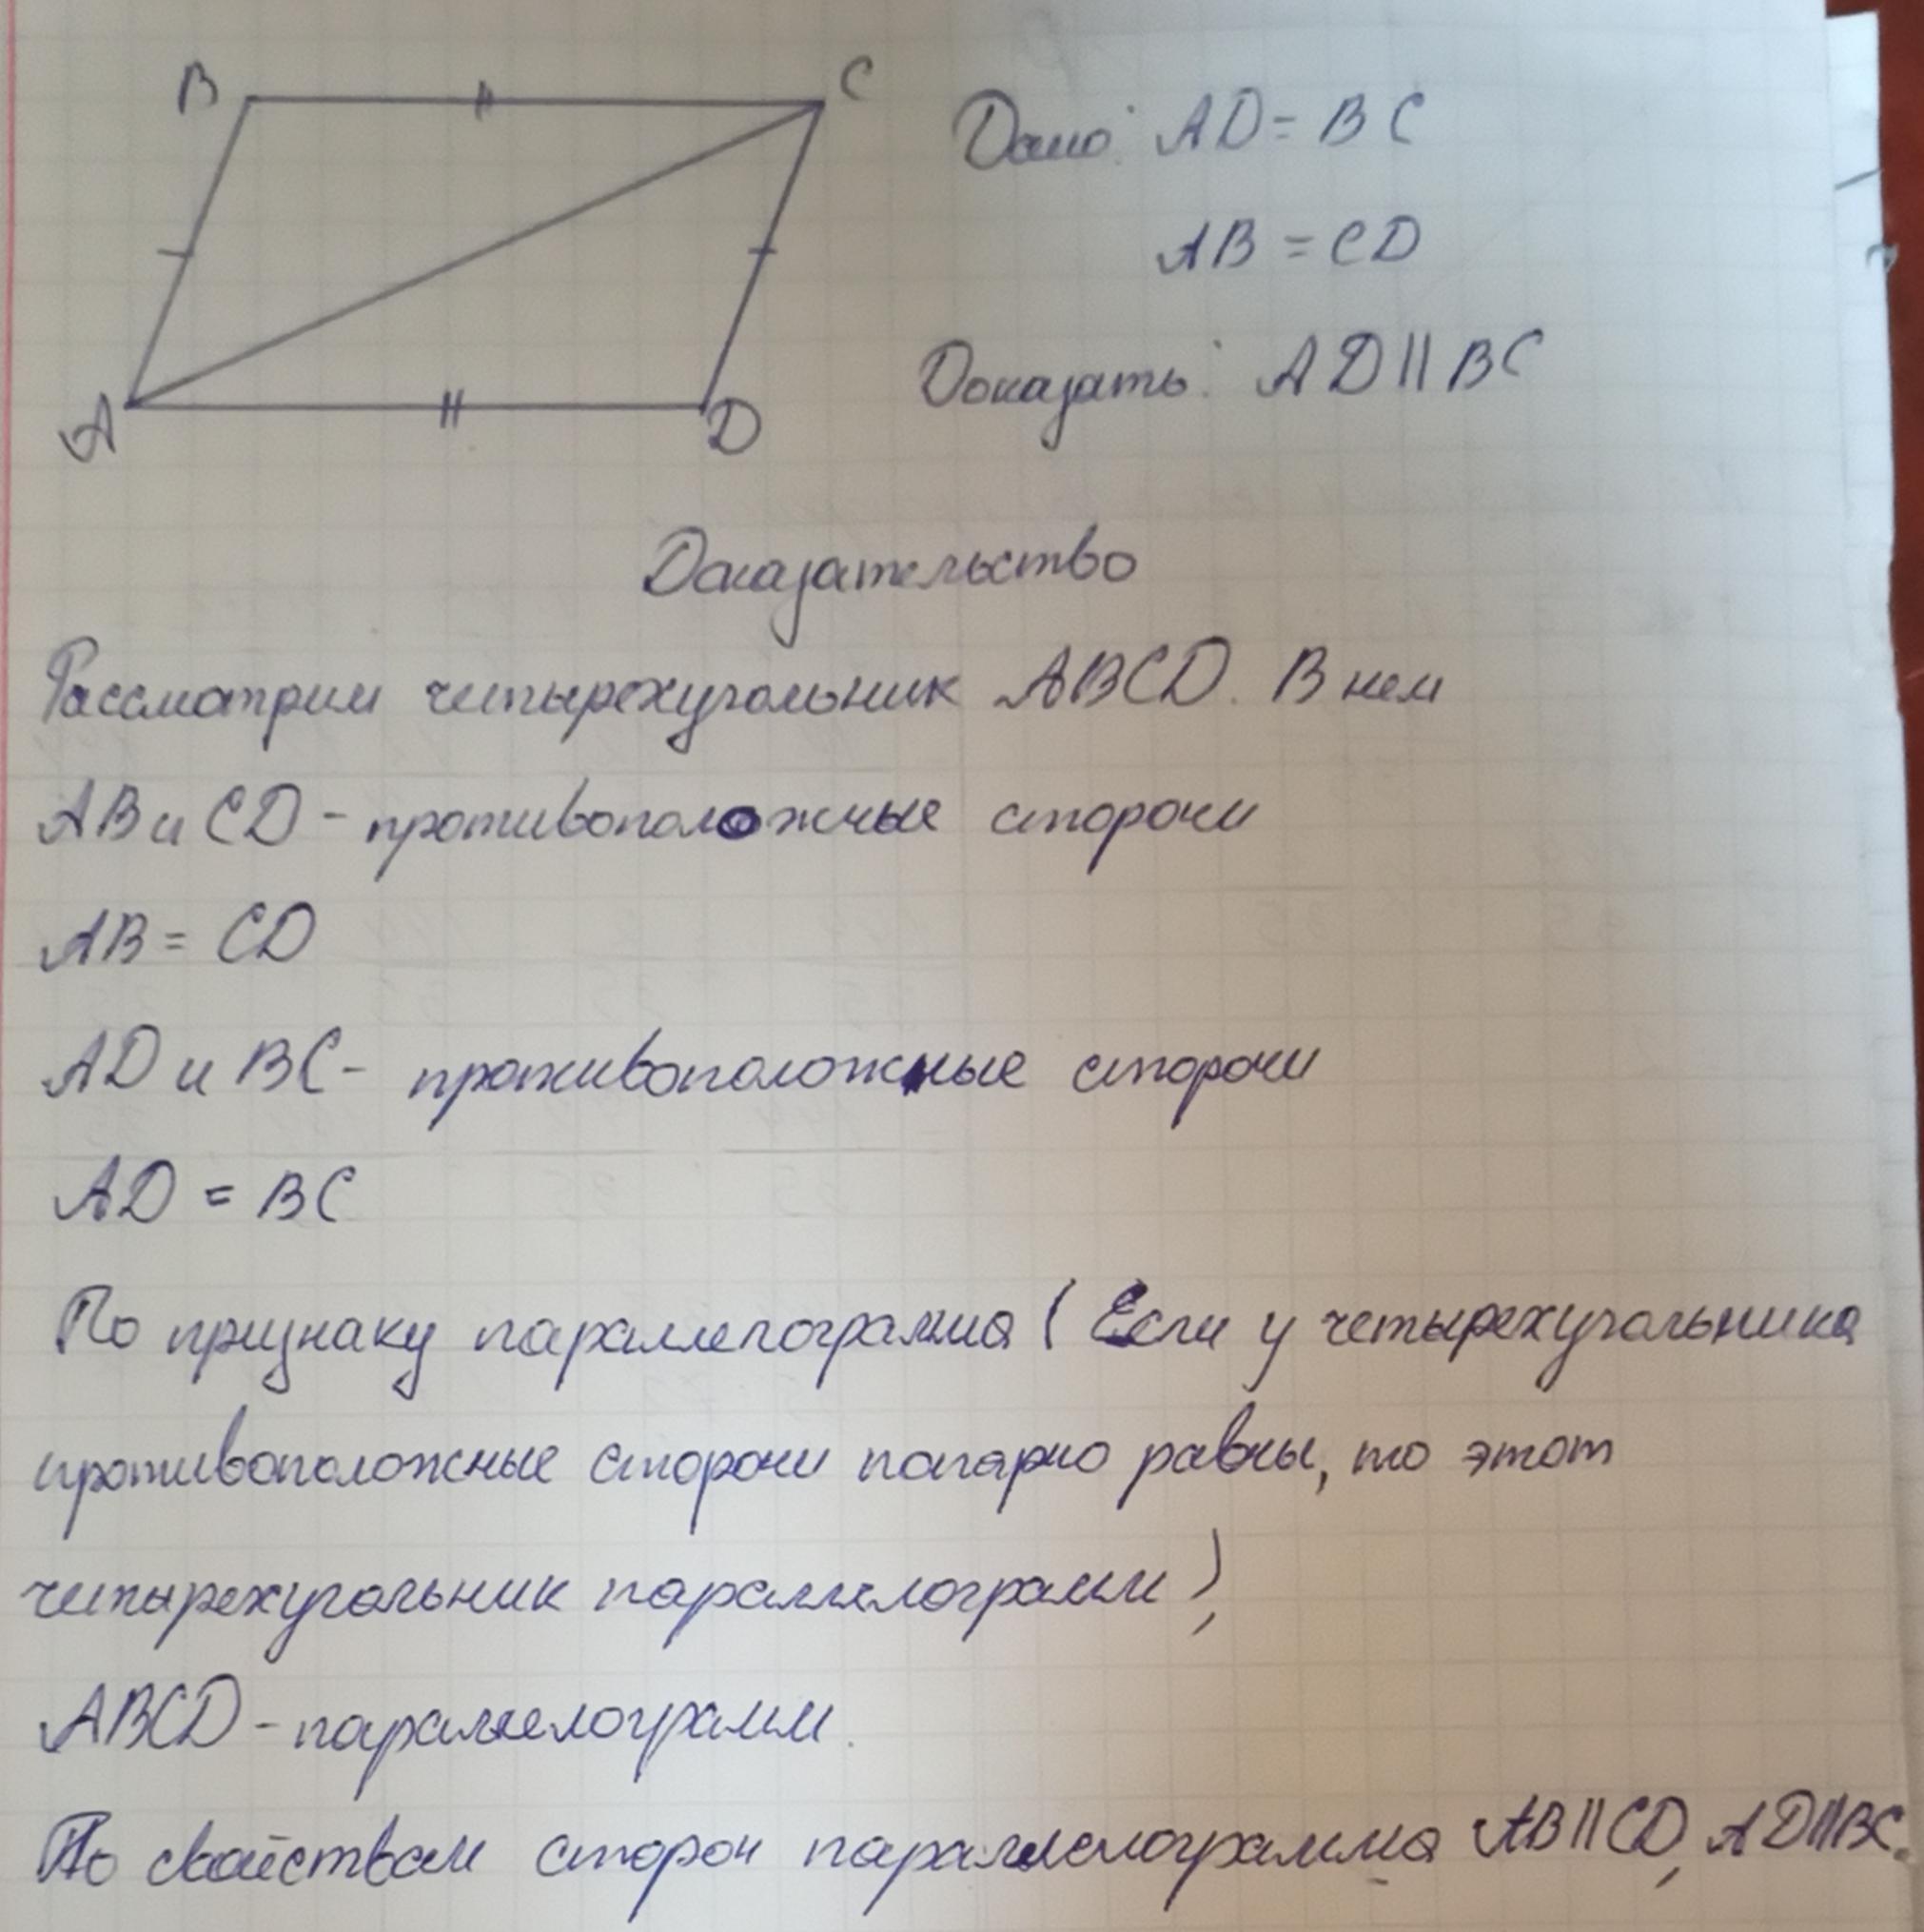 B C
A D
Дано: AD = BC
AB = CD
Доказать: AD || BC
Доказательство
Рассмотрим четырехугольник ABCD. В нем
AB и CD - противоположные стороны
AB = CD
AD и BC - противоположные стороны
AD = BC
По признаку параллелограмма (Если у четырехугольника
противоположные стороны попарно равны, то этот
четырехугольник параллелограмм),
ABCD - параллелограмм.
По свойствам сторон параллелограмма AB || CD, AD || BC.